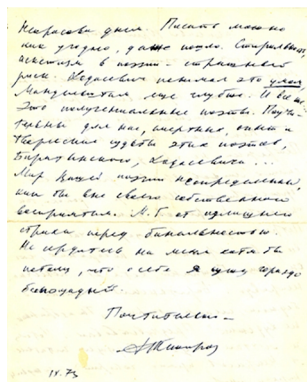 Некрасова днем. Писать можно
как угодно, даже пошло. Стерильность,
аскетизм в поэзии - страшный
риск. Ходасевич понимал это
Мандельштам еще глубже. И все же
это полугениальные поэты. Поуч
для нас, смертных, опыт и
творческие судьбы этих поэтов,
Баратынского, Ходасевича...
Мир Вашей поэзии неопределенный
как бы вне своего собственного
восприятия. М.б. от излишнего
страха перед банальностью.
Не сердитесь на меня хотя бы
потому, что о себе я сужу гораздо
беспощадней.
Почтительно -
IX.73